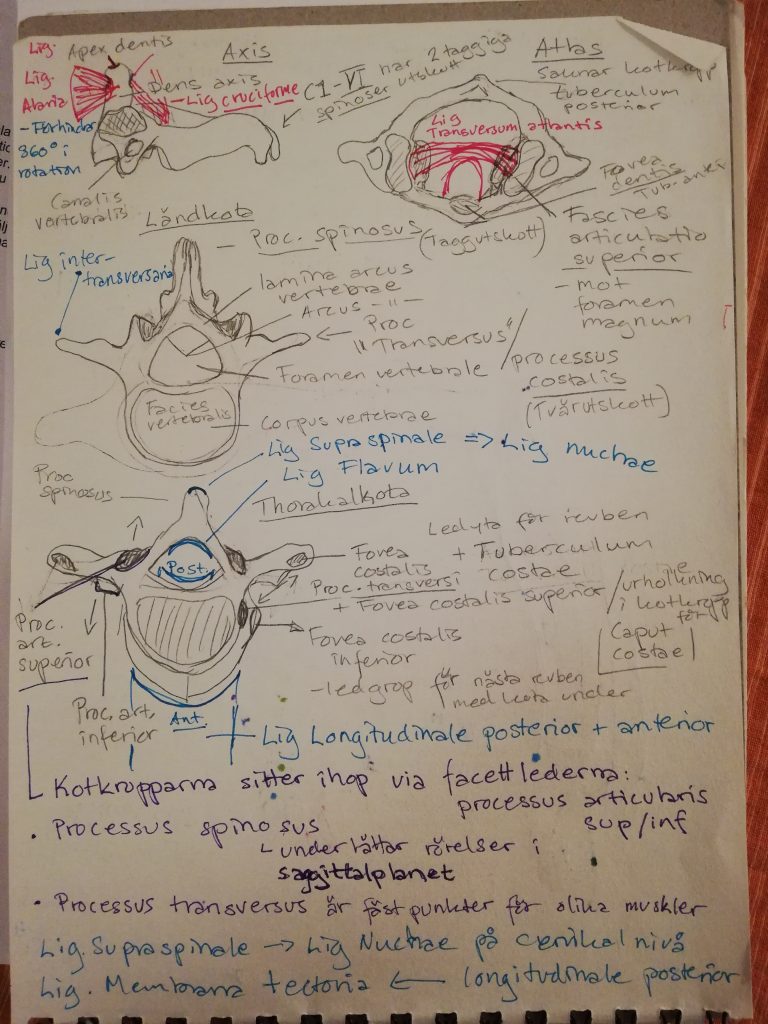 Lig. Apex dentis
Axis
Lig.
Alaria
Dens axis
Lig cruciforme
- Förhindar
360° i
rotation
Canalis
vertebralis
C1-VI har 2 taggiga
spinoser utskott
Atlas
Saknar kotkropp
tuberculum
posterior
Lig
Transversum atlantis
Fovea
dentis
Fascies
articulatio
superior
- mot
foramen
magnum
Ländkota
- Proc. spinosus (Taggutskott)
Lig inter-
transversaria
lamina arcus
vertebrae
Arcus -"-
Proc
"Transversus" /
processus
costalis
(Tvärutskott)
Foramen vertebrale
Facies
vertebralis
Corpus vertebrae
Lig Supraspinale => Lig nuchae
Lig Flavum
Proc
spinosus
Thorakalkota
Ledyta för revben
Post.
Fovea
costalis
Proc. transversi
+ Tuberculum
costae
+ Fovea costalis superior /
urholkning
i kotkropp
för
Caput
costae
Proc.
art.
superior
Fovea costalis
inferior
- ledgrop för nästa revben
med kota under
Proc. art.
inferior
Ant.
Lig Longitudinale posterior + anterior
Kotkropparna sitter ihop via facettlederna:
processus articularis
sup/inf
• Processus spinosus
underlättar rörelser i
saggittalplanet
• Processus transversus är fästpunkter för olika muskler
Lig. Supraspinale → Lig Nuchae på cervikal nivå
Lig. Membrana tectoria ← longitudinale posterior